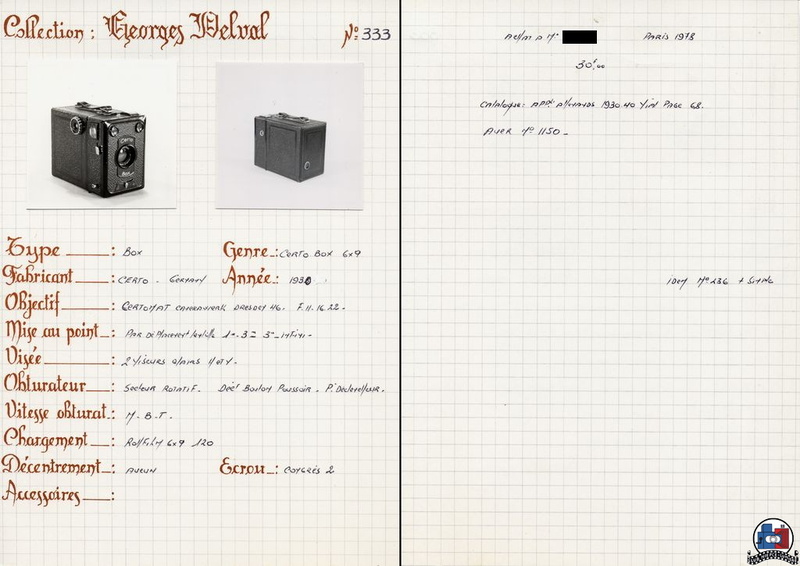 Collection : Georges Delval N° 333
Type : Box Genre : CERTO BOX 6x9
Fabricant : CERTO - GERMANY Année : 1930
Objectif : CERTOMAT CAMERAWERK DRESDEN 46. F.11.16.22.
Mise au point : PAR DEPLACEMENT 1m-3= 3m-INFINI-
Visée : 2 VISEURS CLAIRS
Obturateur : SECTEUR ROTATIF. Décl Bouton Poussoir.
Vitesse obturat. : M.B.T.
Chargement : Rollfilm 6x9 120
Décentrement : AUCUN Ecrou : CONGRÈS 2
Accessoires :
PARIS 1978
30F,00
Catalogue: 1930.40 Page 68.
N° 1150 -
IDEM N° 236